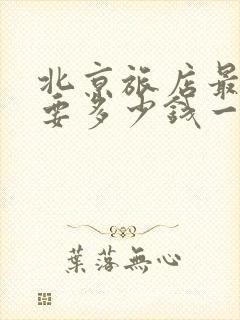 北京旅店最
要多少钱一
葉落無心